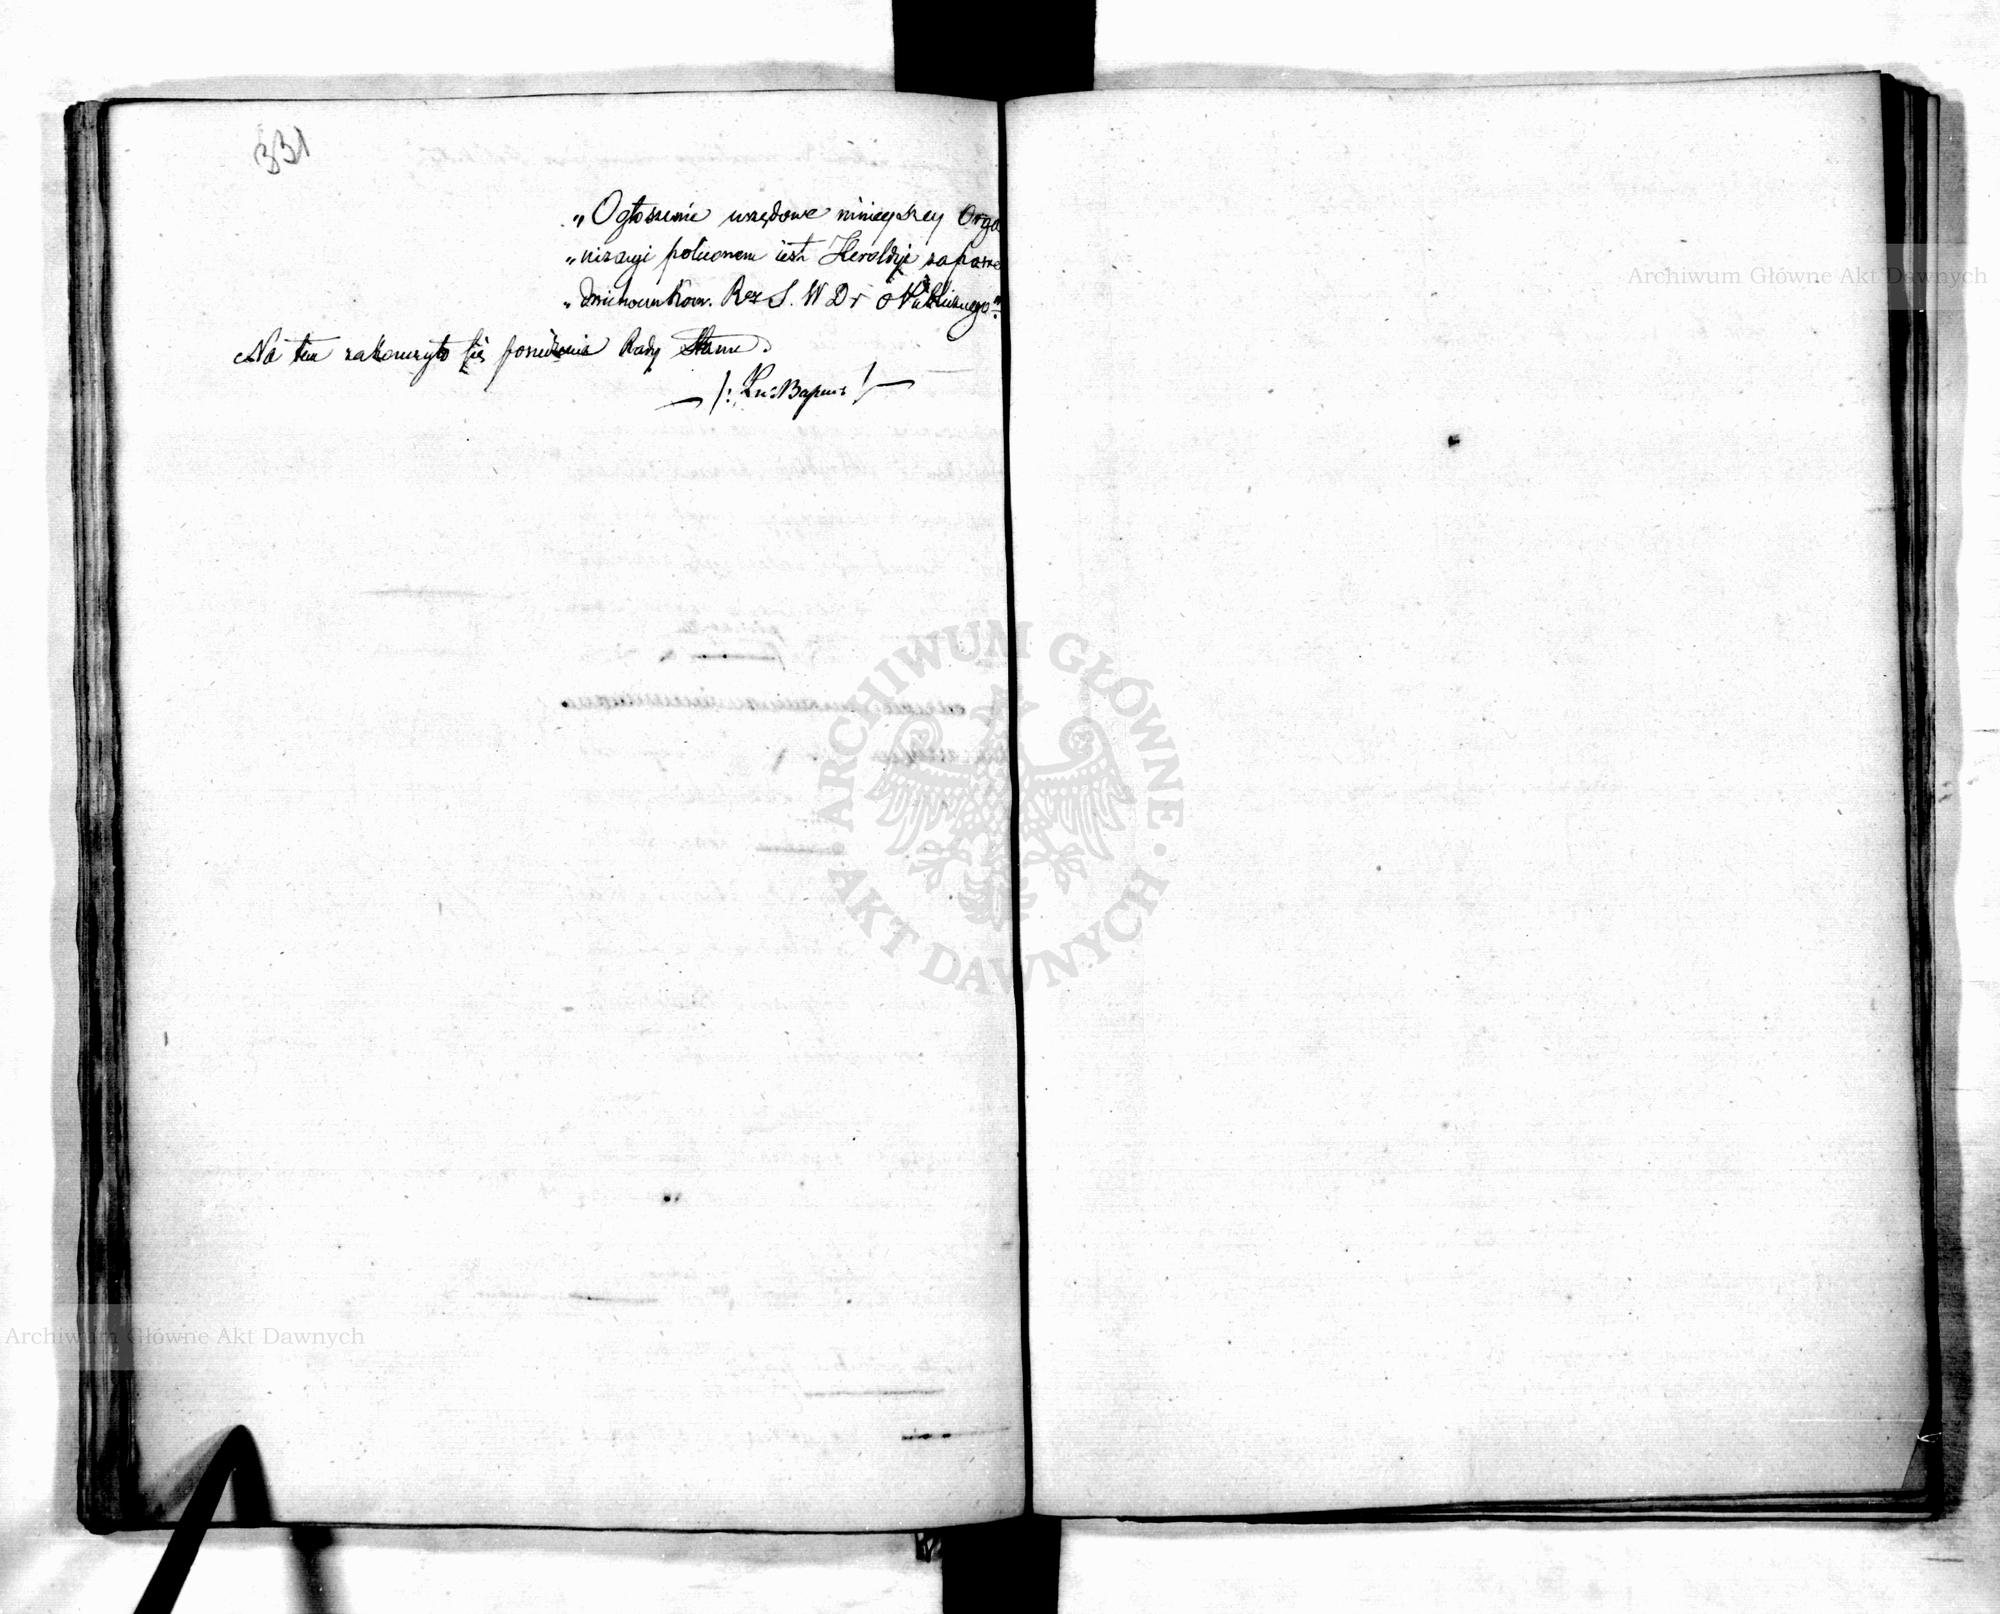 331
„Ogłoszenie urzędowe ninieyszey Orga
„nizacyi polecanem iest Heroldyi za pośre
„dnictwem Kom. Rz. S. W. D. i O. Publicznego"
Na tem zakończyło się posiedzenie Rady Stanu.
ARCHIWUM GŁÓWNE AKT DAWNYCH
Archiwum Główne Akt Dawnych
Archiwum Główne Akt Dawnych